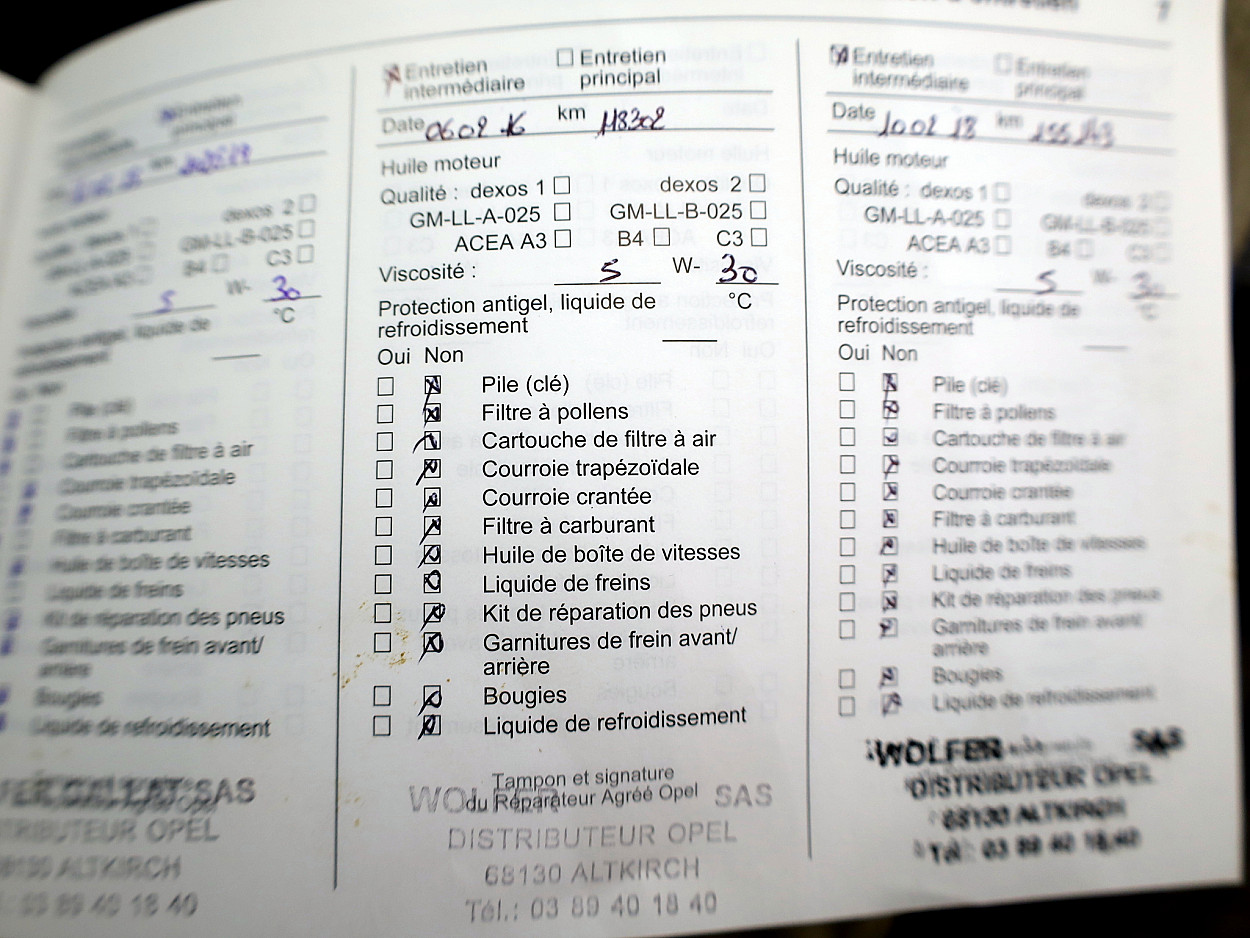 principal
dexos 2
GM-LL-B-025
B4 C3
5 W- 30
°C
liquide de
Pile (clé)
Filtre à pollens
Cartouche de filtre à air
Courroie trapézoïdale
Courroie crantée
Filtre à carburant
Huile de boîte de vitesses
Liquide de freins
Kit de réparation des pneus
Garnitures de frein avant/
arrière
Bougies
Liquide de refroidissement
SAS
DISTRIBUTEUR OPEL
68130 ALTKIRCH
03 89 40 18 40
Entretien intermédiaire Entretien principal
Date 06 02 16 km 118302
Huile moteur
Qualité : dexos 1 dexos 2
GM-LL-A-025 GM-LL-B-025
ACEA A3 B4 C3
Viscosité : 5 W- 30
Protection antigel, liquide de °C
refroidissement
Oui Non
Pile (clé)
Filtre à pollens
Cartouche de filtre à air
Courroie trapézoïdale
Courroie crantée
Filtre à carburant
Huile de boîte de vitesses
Liquide de freins
Kit de réparation des pneus
Garnitures de frein avant/
arrière
Bougies
Liquide de refroidissement
Tampon et signature
du Réparateur Agréé Opel
WOLFER SAS
DISTRIBUTEUR OPEL
68130 ALTKIRCH
Tél.: 03 89 40 18 40
Entretien intermédiaire Entretien principal
Date 10 02 18 km
Huile moteur
Qualité : dexos 1 dexos 2
GM-LL-A-025 GM-LL-B-025
ACEA A3 B4 C3
Viscosité : 5 W- 30
Protection antigel, liquide de °C
refroidissement
Oui Non
Pile (clé)
Filtre à pollens
Cartouche de filtre à air
Courroie trapézoïdale
Courroie crantée
Filtre à carburant
Huile de boîte de vitesses
Liquide de freins
Kit de réparation des pneus
Garnitures de frein avant/
arrière
Bougies
Liquide de refroidissement
WOLFER SAS
DISTRIBUTEUR OPEL
68130 ALTKIRCH
Tél.: 03 89 40 18 40